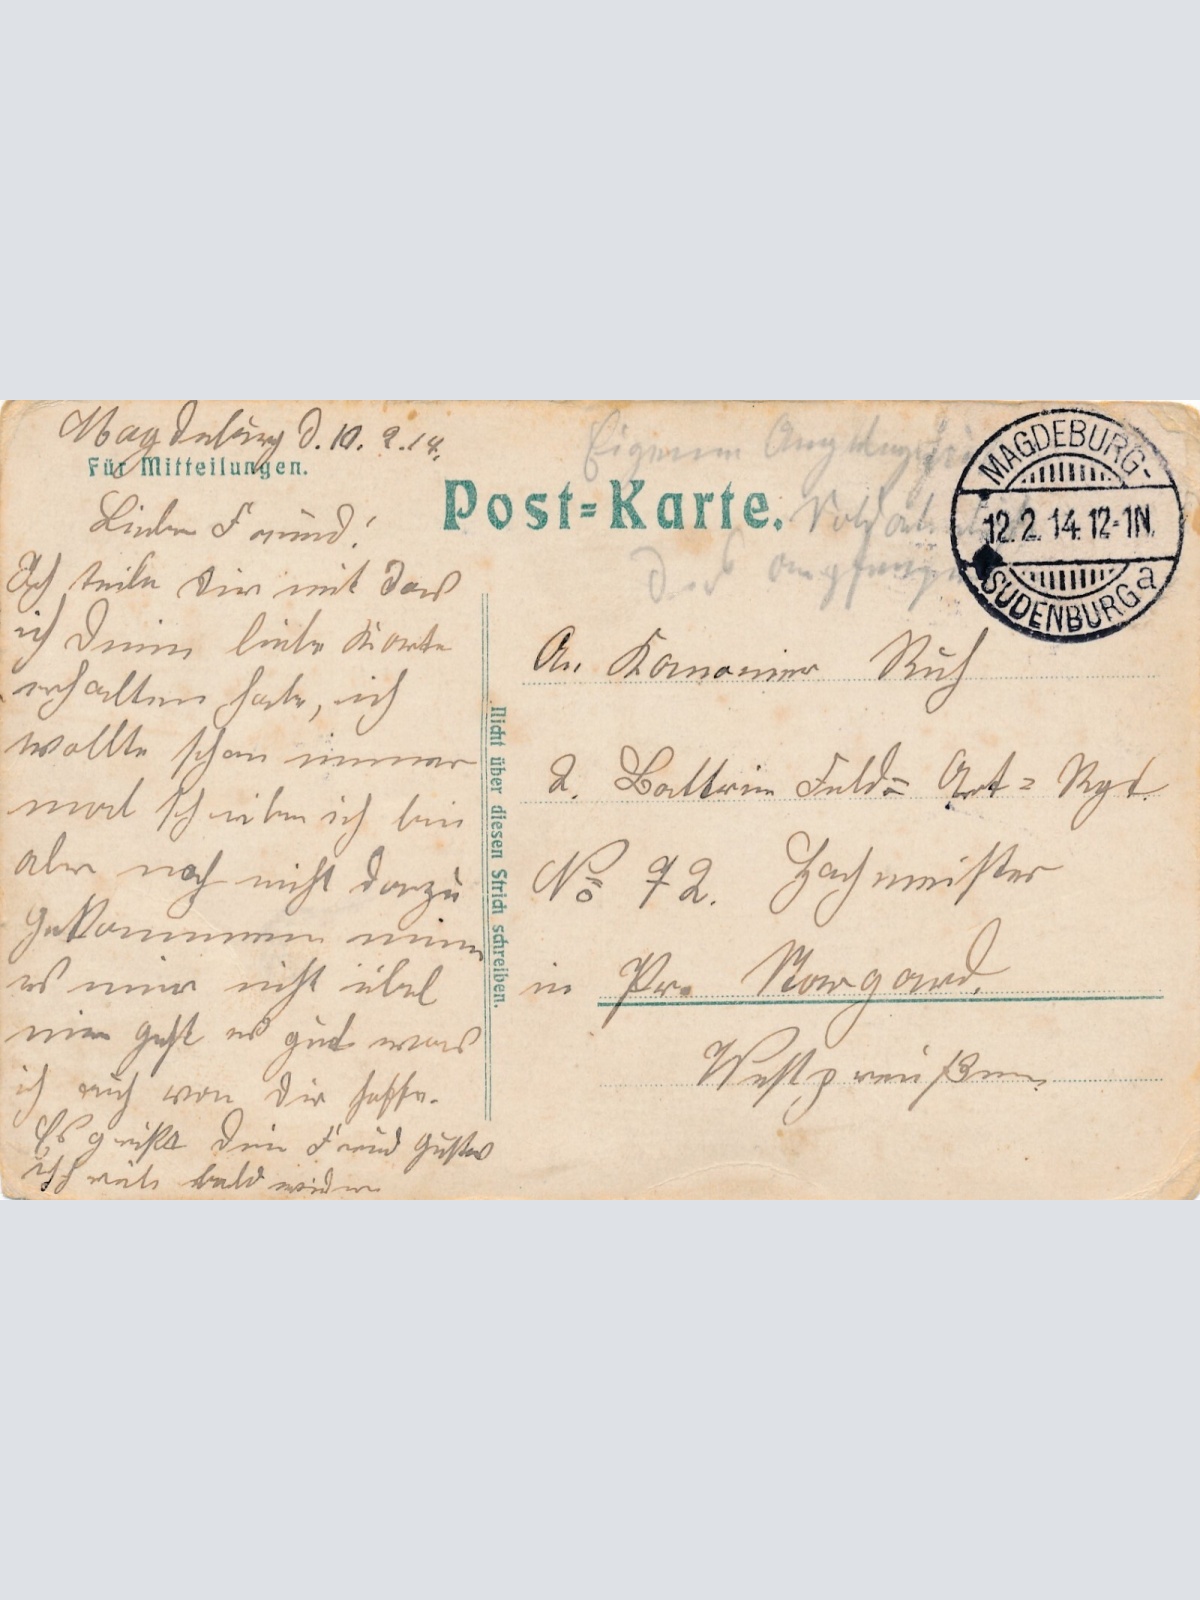 Magdeburg d. 10.2.14.
Für Mitteilungen.
Lieber Freund!
Ich teile Dir mit das
ich Deine liebe Karte
erhalten habe, ich
wollte schon immer
mal schreiben ich bin
aber noch nicht dazu
gekommen nimm
es mir nicht übel
mir geht es gut was
ich auch von Dir hoffe.
Es grüßt Dein Freund Gustav
schreib bald wieder
Post=Karte.
Eigene Angelegenheit
Soldaten
des Empfängers
Nicht über diesen Strich schreiben.
MAGDEBURG-
12.2.14.12-1N.
SUDENBURG a
An Kanonier Ruh
2. Battrie Feld= Art= Rgt.
No 72. Hochmeister
in Pr. Stargard.
Westpreußen.